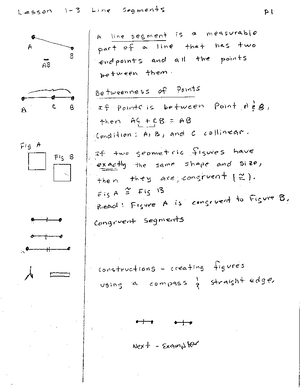 Lesson 1-3 Line Segments
P1
A B
AB
A line segment is a measurable
part of a line that has two
endpoints and all the points
between them.
Betweenness of Points
A C B
If Point C is between Point A & B,
then AC + CB = AB
Condition: A, B, and C collinear.
Fig A
Fig B
If two geometric figures have
exactly the same shape and size,
then they are congruent (≅).
Fig A ≅ Fig B
Read: Figure A is congruent to Figure B.
Congruent Segments
Constructions - creating figures
using a compass & straight edge.
Next - Examples